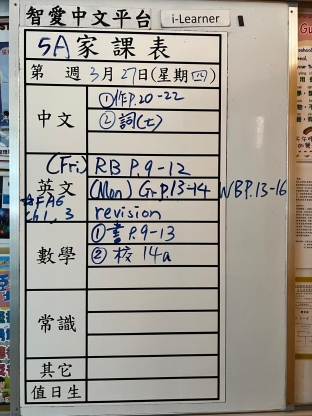 智愛中文平台 i-Learner
5A家課表
第 週 3月27日(星期四)
中文
①作P.20-22
②詞(七)
英文
(Fri) RB P.9-12
(Mon) Gr.P.13-14 NB P.13-16
#FA6
ch1, 3
revision
數學
①書P.9-13
②校 14a
常識
其它
值日生